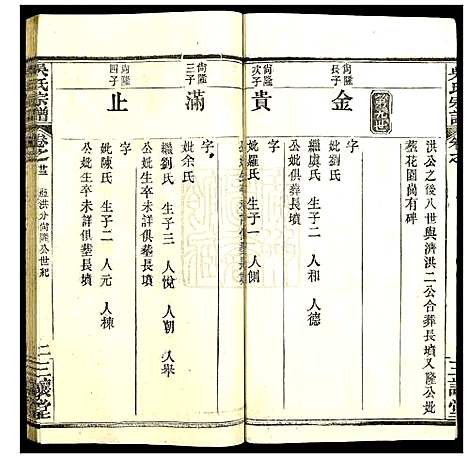 洪公之後八世與濟洪二公合葬長墳又隆公妣
葬花園尚有碑
尚隆長子
金
繼虞氏 生子二 人和 人德
公妣俱葬長墳
尚隆次子
貴
字
妣羅氏 生子一 人側
尚隆三子
滿
字
妣余氏
繼劉氏 生子三 人悅 人朝 人舉
公妣生卒未詳俱葬長墳
尚隆四子
止
字
妣陳氏 生子二 人元 人棟
公妣生卒未詳俱葬長墳
吳氏宗譜
卷之
洪分尚隆公世紀
三讓堂